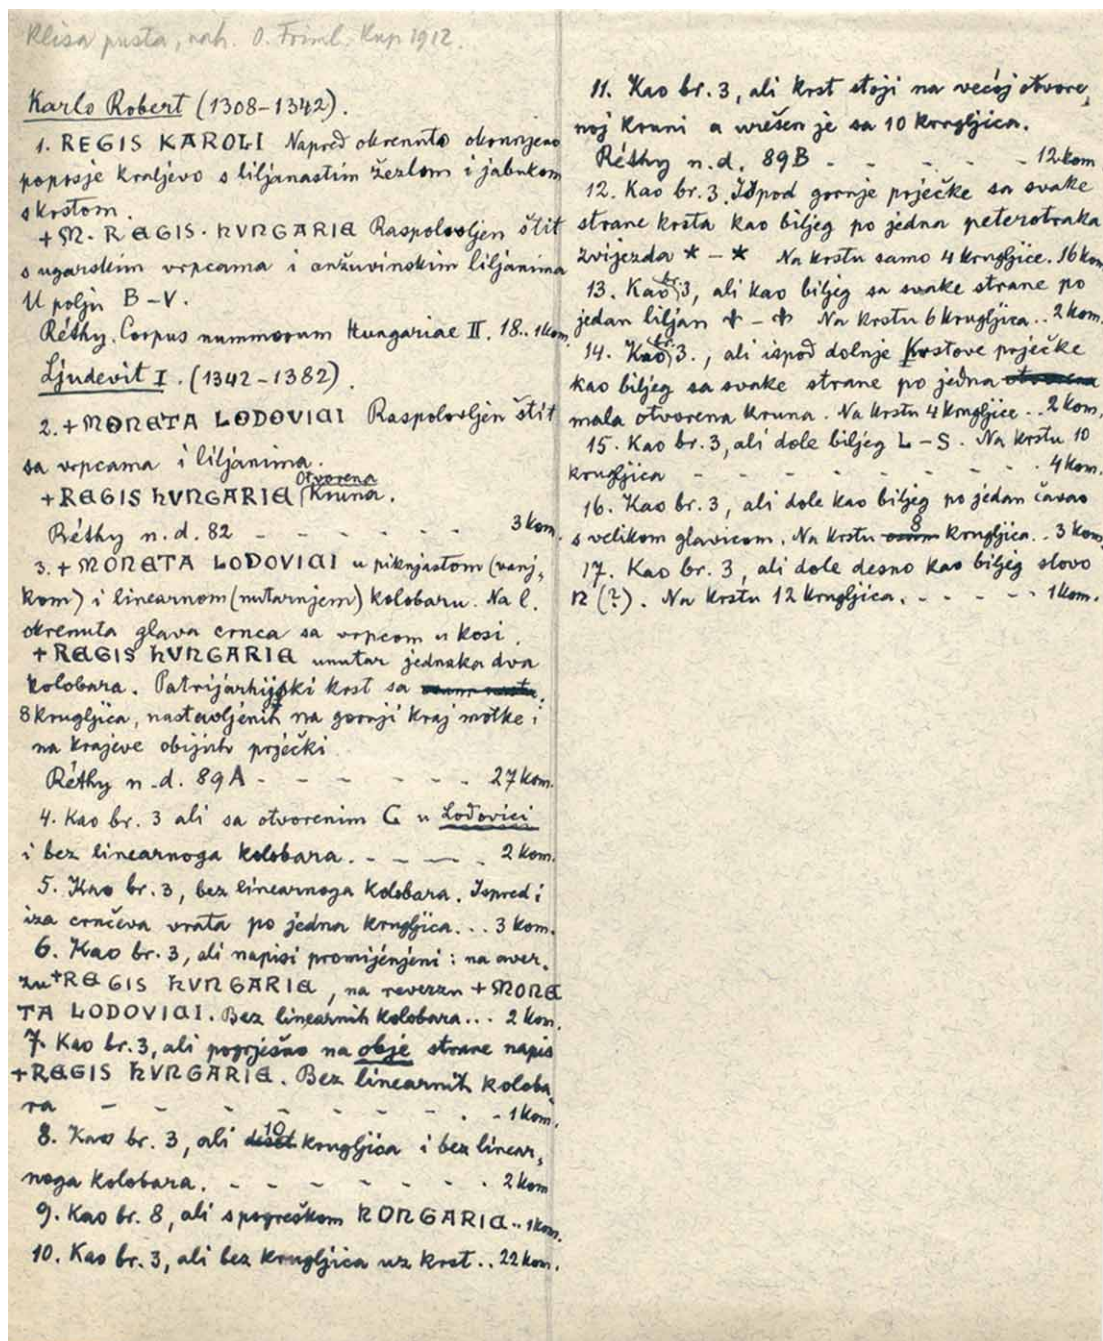 Klisa pusta, nah. O. Friml. Kup 1912.
Karlo Robert (1308-1342).
1. REGIS KAROLI Napred okrenuto okrunjeno
poprsje kraljevo s liljanastim žezlom i jabukom
s krstom.
+M. REGIS. hVNGARIE Raspolovljen štit
s ugarskim vrpcama i anžuvinskim liljanima
U polju B-V.
Réthy. Corpus nummorum Hungariae II. 18.. 1 kom.
Ljudevit I. (1342-1382).
2. +MONETA LODOVICI Raspolovljen štit
sa vrpcama i liljanima.
+REGIS hVNGARIE Otvorena kruna.
Réthy n. d. 82 - - - - - - 3 kom.
3. + MONETA LODOVICI u piknjastom (vanj-
kom) i linearnom (nutarnjem) kolobaru. Na l.
okrenuta glava crnca sa vrpcom u kosi.
+REGIS hVNGARIE unutar jednaka dva
kolobara. Patrijarhijski krst sa
8 krugljica, nastavljenih na gornji kraj motke i
na krajeve obijuh prječki
Réthy n.d. 89A - - - - - - 27 kom.
4. Kao br. 3 ali sa otvorenim C u Lodovici
i bez linearnoga kolobara. - - - . 2 kom.
5. Kao br. 3, bez linearnoga kolobara. Ispred i
iza crnčeva vrata po jedna krugljica... 3 kom.
6. Kao br. 3, ali napisi promijenjeni : na aver-
zu +REGIS hVNGARIE, na reverzu +MONE
TA LODOVICI. Bez linearnih kolobara... 2 kom.
7. Kao br. 3, ali pogrješno na obje strane napis
+REGIS hVNGARIE. Bez linearnih koloba-
ra - - - - - - - - - 1 kom.
8. Kao br. 3, ali 10 krugljica i bez linear-
noga kolobara. - - - - - - - 2 kom
9. Kao br. 8, ali s pogreškom hONGARIE.. 1 kom.
10. Kao br. 3, ali bez krugljica uz krst.. 22 kom.
11. Kao br. 3, ali krst stoji na većoj otvore-
noj kruni a urešen je sa 10 krugljica.
Réthy n. d. 89B - - - - - - 12 kom
12. Kao br. 3. Ispod gornje prječke sa svake
strane krsta kao biljeg po jedna peterotraka
zvijezda * - * Na krstu samo 4 krugljice. 16 kom
13. Kao br. 3, ali kao biljeg sa svake strane po
jedan liljan ⚜ - ⚜ Na krstu 6 krugljica.. 2 kom.
14. Kao br. 3., ali ispod dolnje krstove prječke
kao biljeg sa svake strane po jedna
mala otvorena kruna. Na krstu 4 krugljice... 2 kom.
15. Kao br. 3, ali dole biljeg L - S. Na krstu 10
krugljica - - - - - - - - . 4 kom.
16. Kao br. 3, ali dole kao biljeg po jedan čavao
s velikom glavicom. Na krstu 8 krugljica.. 3 kom.
17. Kao br. 3, ali dole desno kao biljeg slovo
n (?). Na krstu 12 krugljica. - - - - 1 kom.